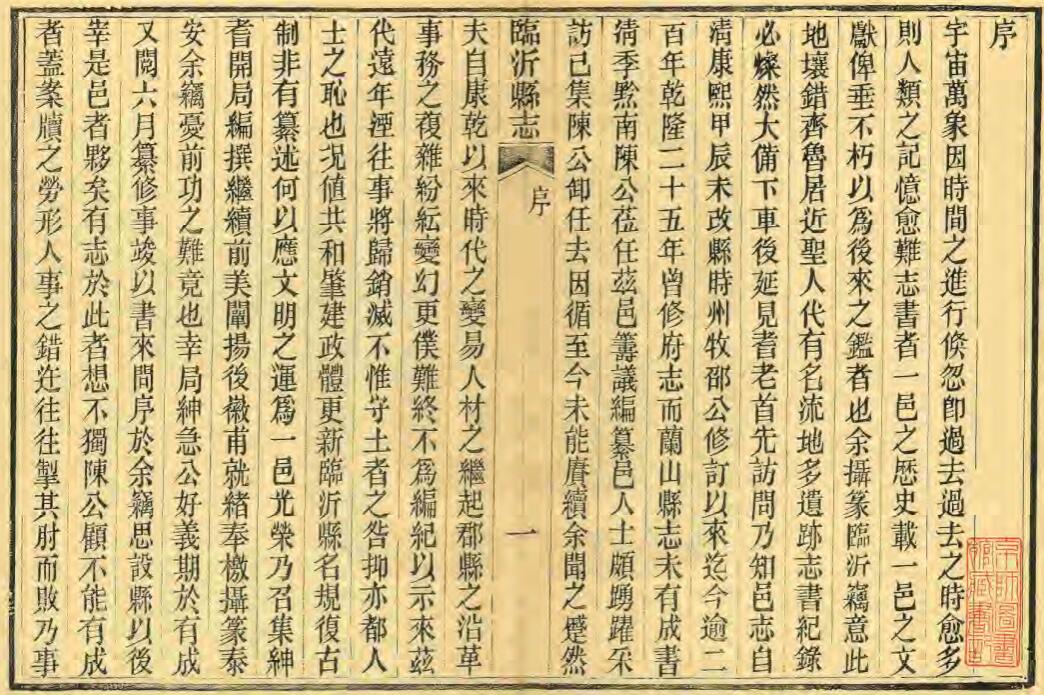 序
宇宙萬象因時間之進行倐忽卽過去過去之時愈多
則人類之記憶愈難志書者一邑之歷史載一邑之文
獻俾垂不朽以爲後來之鑑者也余攝篆臨沂竊意此
地壤錯齊魯居近聖人代有名流地多遺跡志書紀錄
必燦然大備下車後延見耆老首先訪問乃知邑志自
淸康熙甲辰未改縣時州牧邵公修訂以來迄今逾二
百年乾隆二十五年曾修府志而蘭山縣志未有成書
淸季黔南陳公莅任茲邑籌議編纂邑人士頗踴躍采
訪已集陳公卸任去因循至今未能賡續余聞之蹙然
臨沂縣志
序
一
夫自康乾以來時代之變易人材之繼起郡縣之沿革
事務之複雜紛紜變幻更僕難終不爲編紀以示來茲
代遠年湮往事將歸銷滅不惟守土者之咎抑亦都人
士之恥也況値共和肇建政體更新臨沂縣名規復古
制非有纂述何以應文明之運爲一邑光榮乃召集紳
耆開局編撰繼續前美闡揚後徽甫就緒奉檄攝篆泰
安余竊憂前功之難竟也幸局紳急公好義期於有成
又閱六月纂修事竣以書來問序於余竊思設縣以後
宰是邑者夥矣有志於此者想不獨陳公顧不能有成
者蓋案牘之勞形人事之錯迕往往掣其肘而敗乃事